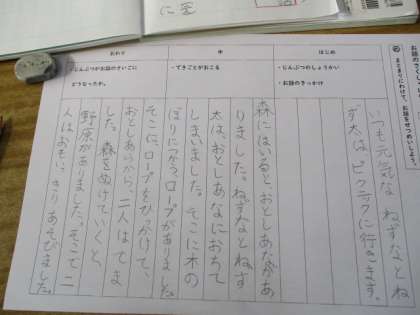 まとまりにわけて、お話をせつめいしよう。
はじめ
・じんぶつのしょうかい
・お話のきっかけ
いつも元気な ねずなとね
ず太は、ピクニックに行きます。
中
・できごとがおこる
森にはいると、おとしあながあ
りました。ねずなとねず
太は、おとしあなにおちて
しまいました。そこに木の
ぼりにつかう、ロープがありました。
おわり
・じんぶつがお話のさいごに
どうなったか。
そこに、ロープをひっかけて、
おとしあなから、二人はでま
した。森をぬけていくと、
野原がありました。そこで二
人はおもいっきりあそびました。